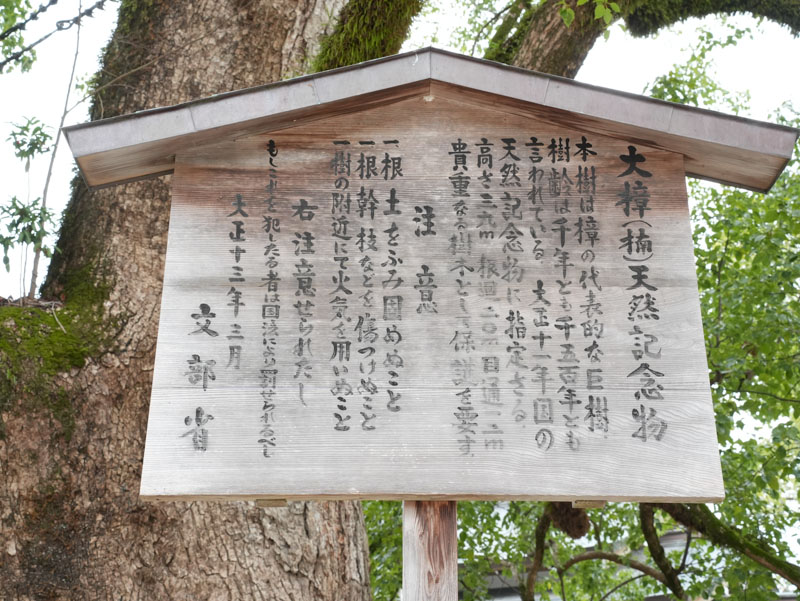 大樟(楠)天然記念物
本樹は樟の代表的な巨樹、
樹齢は千年とも千五百年とも
言われている。大正十一年国の
天然記念物に指定さる。
高さ二六m 根廻二〇m 目通一二m
貴重なる樹木として保護を要す。
注意
一根土をふみ固めぬこと
一根幹枝などを傷つけぬこと
一樹の附近にて火気を用いぬこと
右注意せられたし
もしこれを犯したる者は国法により罰せられるべし
大正十三年三月
文部省